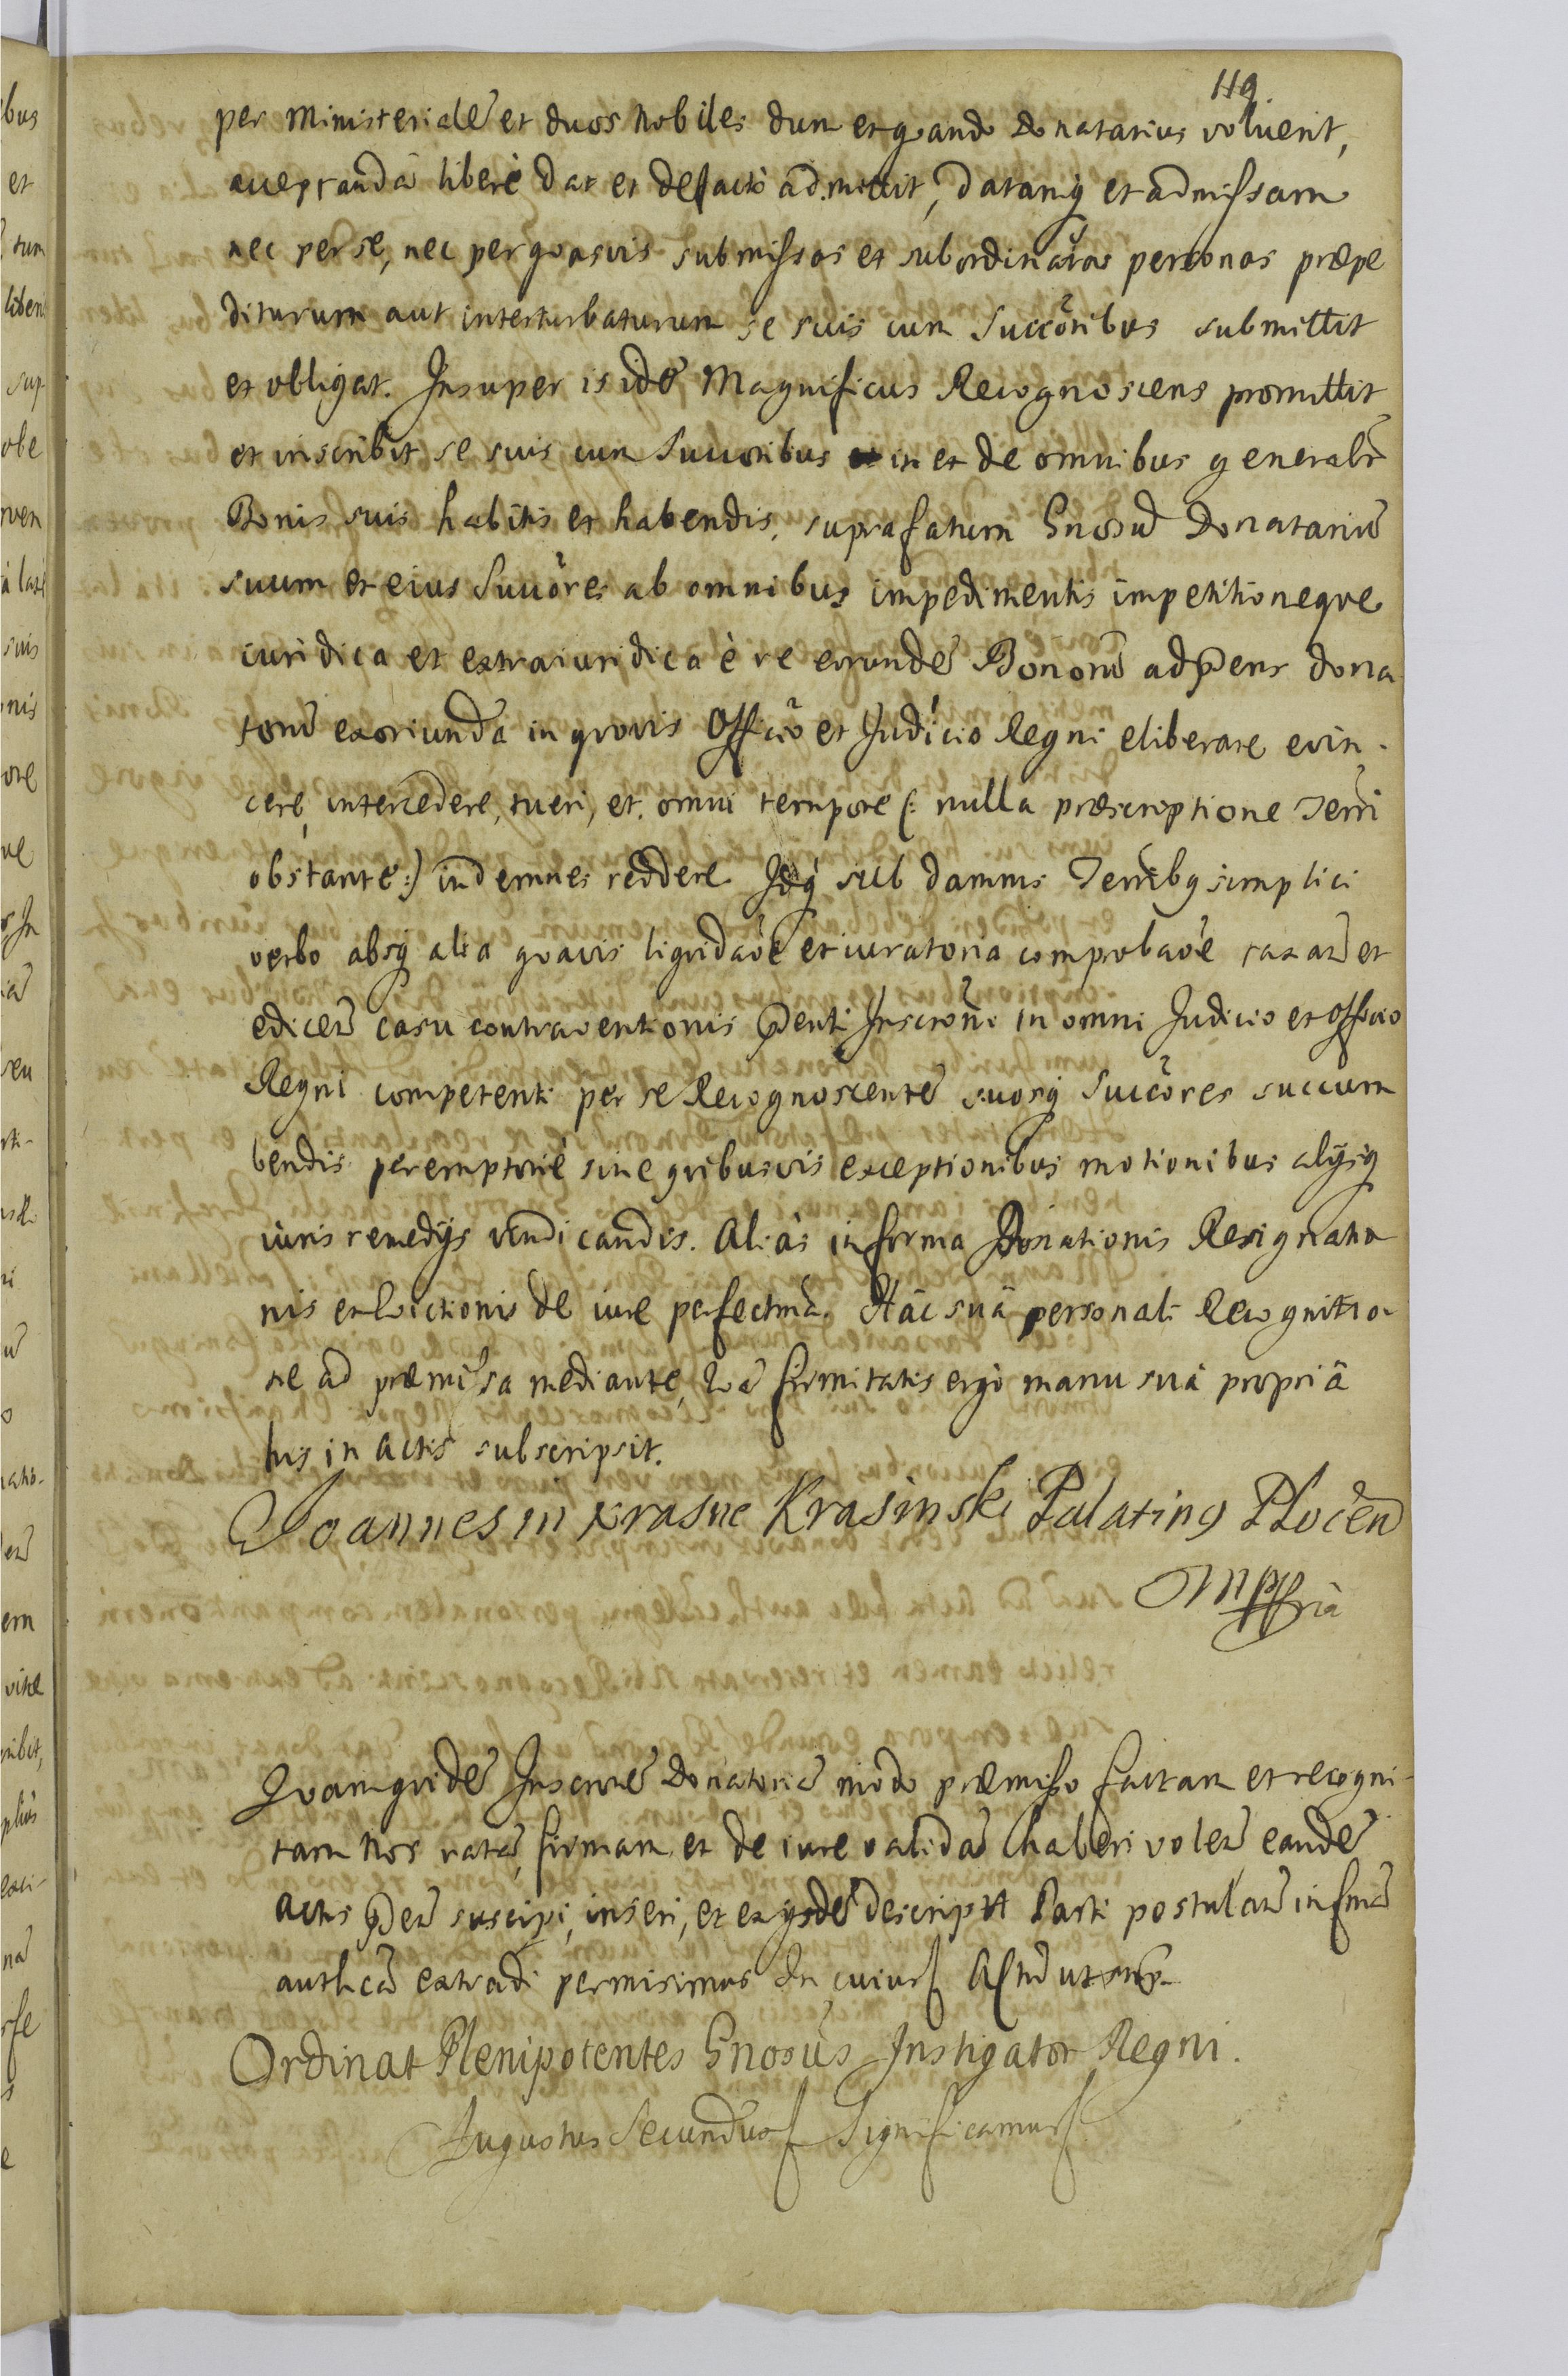 119.
per Ministerialē et duos Nobiles dum et qando Donatarius voluerit,
acceptandā liberè dat et defactò admittit, datamq́ et admissam
nec per se, nec per qvasvis submissas et subordinatas personas præpe
diturum aut interturbaturum se suis cum Succ̃oribus submittit
et obligat. Insuper is idē Magnificus Recognoscens promittit
et inscribit se suis cum Succoribus in et de omnibus generalr̃
Bonis suis habitis et habendis, suprafatum Gnosū Donatariū
suum et eius Succõres ab omnibus impedimentis impetitioneqve
iuridica et extraiuridica è re eorundē Bonorū ad p̃ens dona
torū exoriundā in qvovis Officio et Judicio Regni eliberare evin.
cere, intercedere, tueri, et omni tempore (: nulla præscriptione Terr̃i
obstante :) indemnes reddere. Idq́ sub damnis Terr̃ibq simplici
verbo absq́ alia qvavis liqvidaõe et iuratoria comprobaõe taxañ et
ediceñ casu contraventionis p̃enti Inscrõni in omni Judicio et Officio
Regni competenti per se Recognoscentē suosq́ Succ̃ores succum
bendis peremptoriè sine qvibusvis exceptionibus motionibus alijsq́
iuris remedijs vindicandis. Aliàs in forma Donationis Resignatio
nis et Evictionis de iure perfectiss̃mā. Hâc suâ personali Recognitio-
ne ad præmissa mediante, firmitatis ergò manu suâ propriâ
his in Actis subscripsit.
Joannes in Krasne Krasinski Palatinq Plocen̄
mppria
Qvamqvidē Inscrõnē Donatoriā modo præmisso factam et recogni-
tam Nos ratā, firmam et de iure validā haberi voleñ eandē
Actis p̃eñ suscipi, inseri, et ex ijsdē descriptā Parti postulañ in fmā
authcā extradi permisimus In cuius
Ordinat Plenipotentes Gnosus Instigator Regni.
Augustus Secundus Significamus